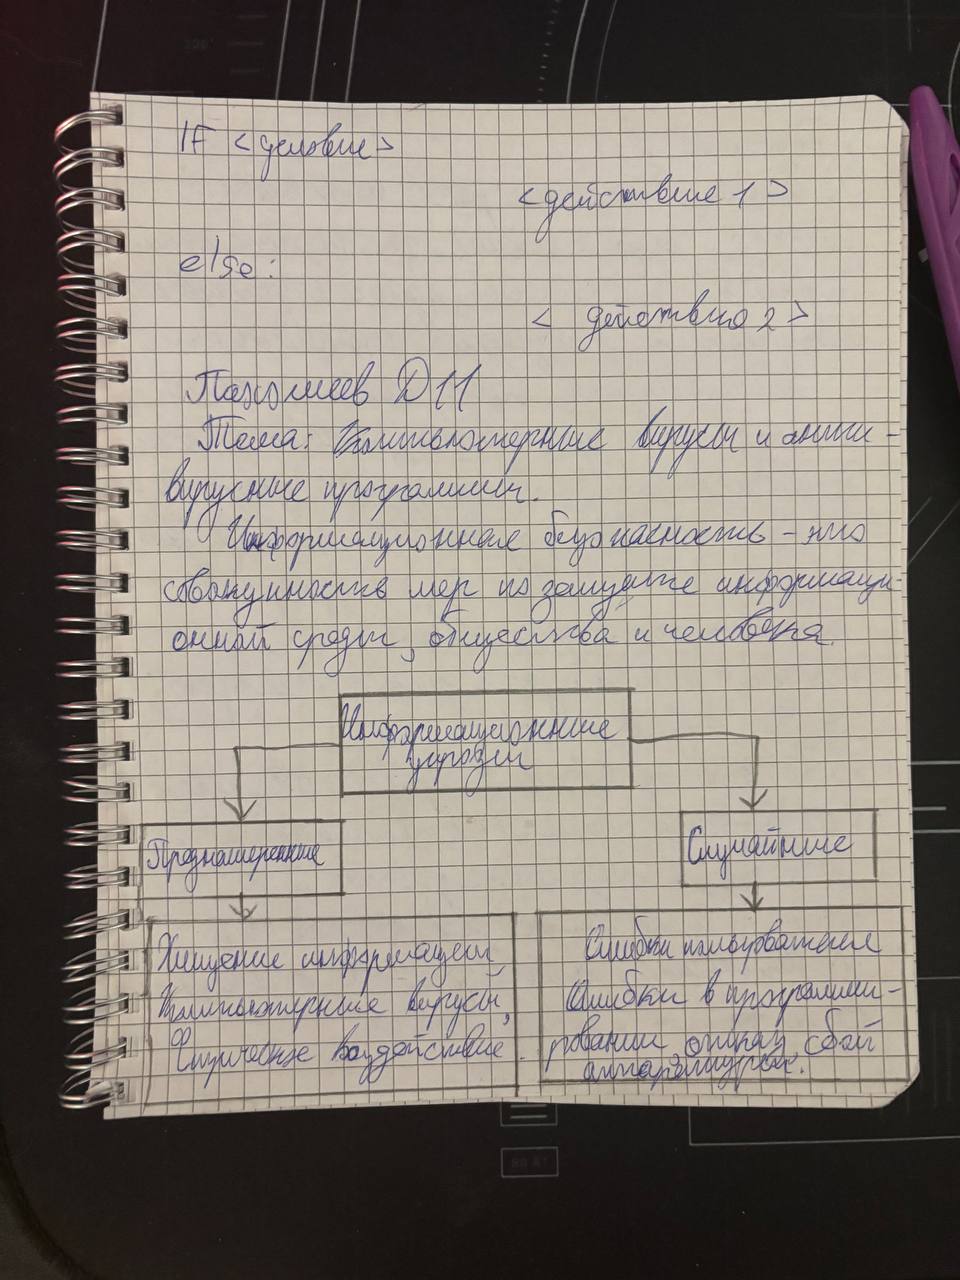 IF <условие>
<действие 1>
else:
<действио 2>
Д11
Тема: Компьютерные вирусы и анти-
вирусные программы.
Информационная безопасность - это
совокупность мер по защите информаци-
онной среды, общества и человека.
Информационные
угрозы
Преднамеренные
Случайные
Хищение информации,
Компьютерные вирусы,
Физическое воздействие.
Ошибки пользователя
Ошибки в программи-
ровании отказ, сбой
аппаратуры.